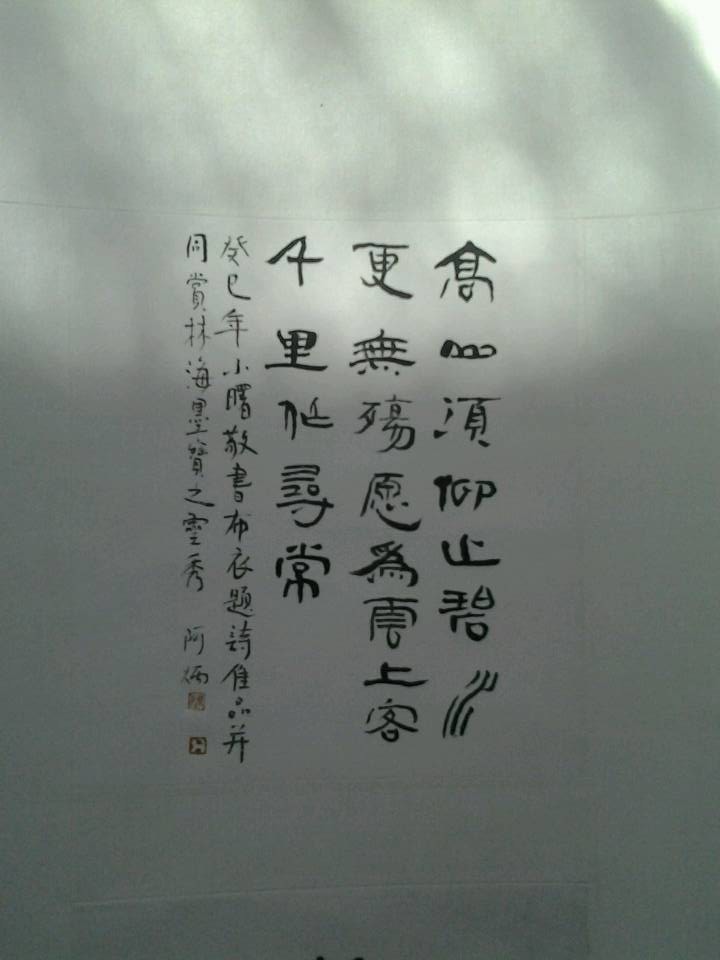 高山須仰止碧水
更無殤愿為雲上客
千里似尋常
癸巳年小曙敬書布衣題詩佳品并
同賞林海墨寶之靈秀 阿炳